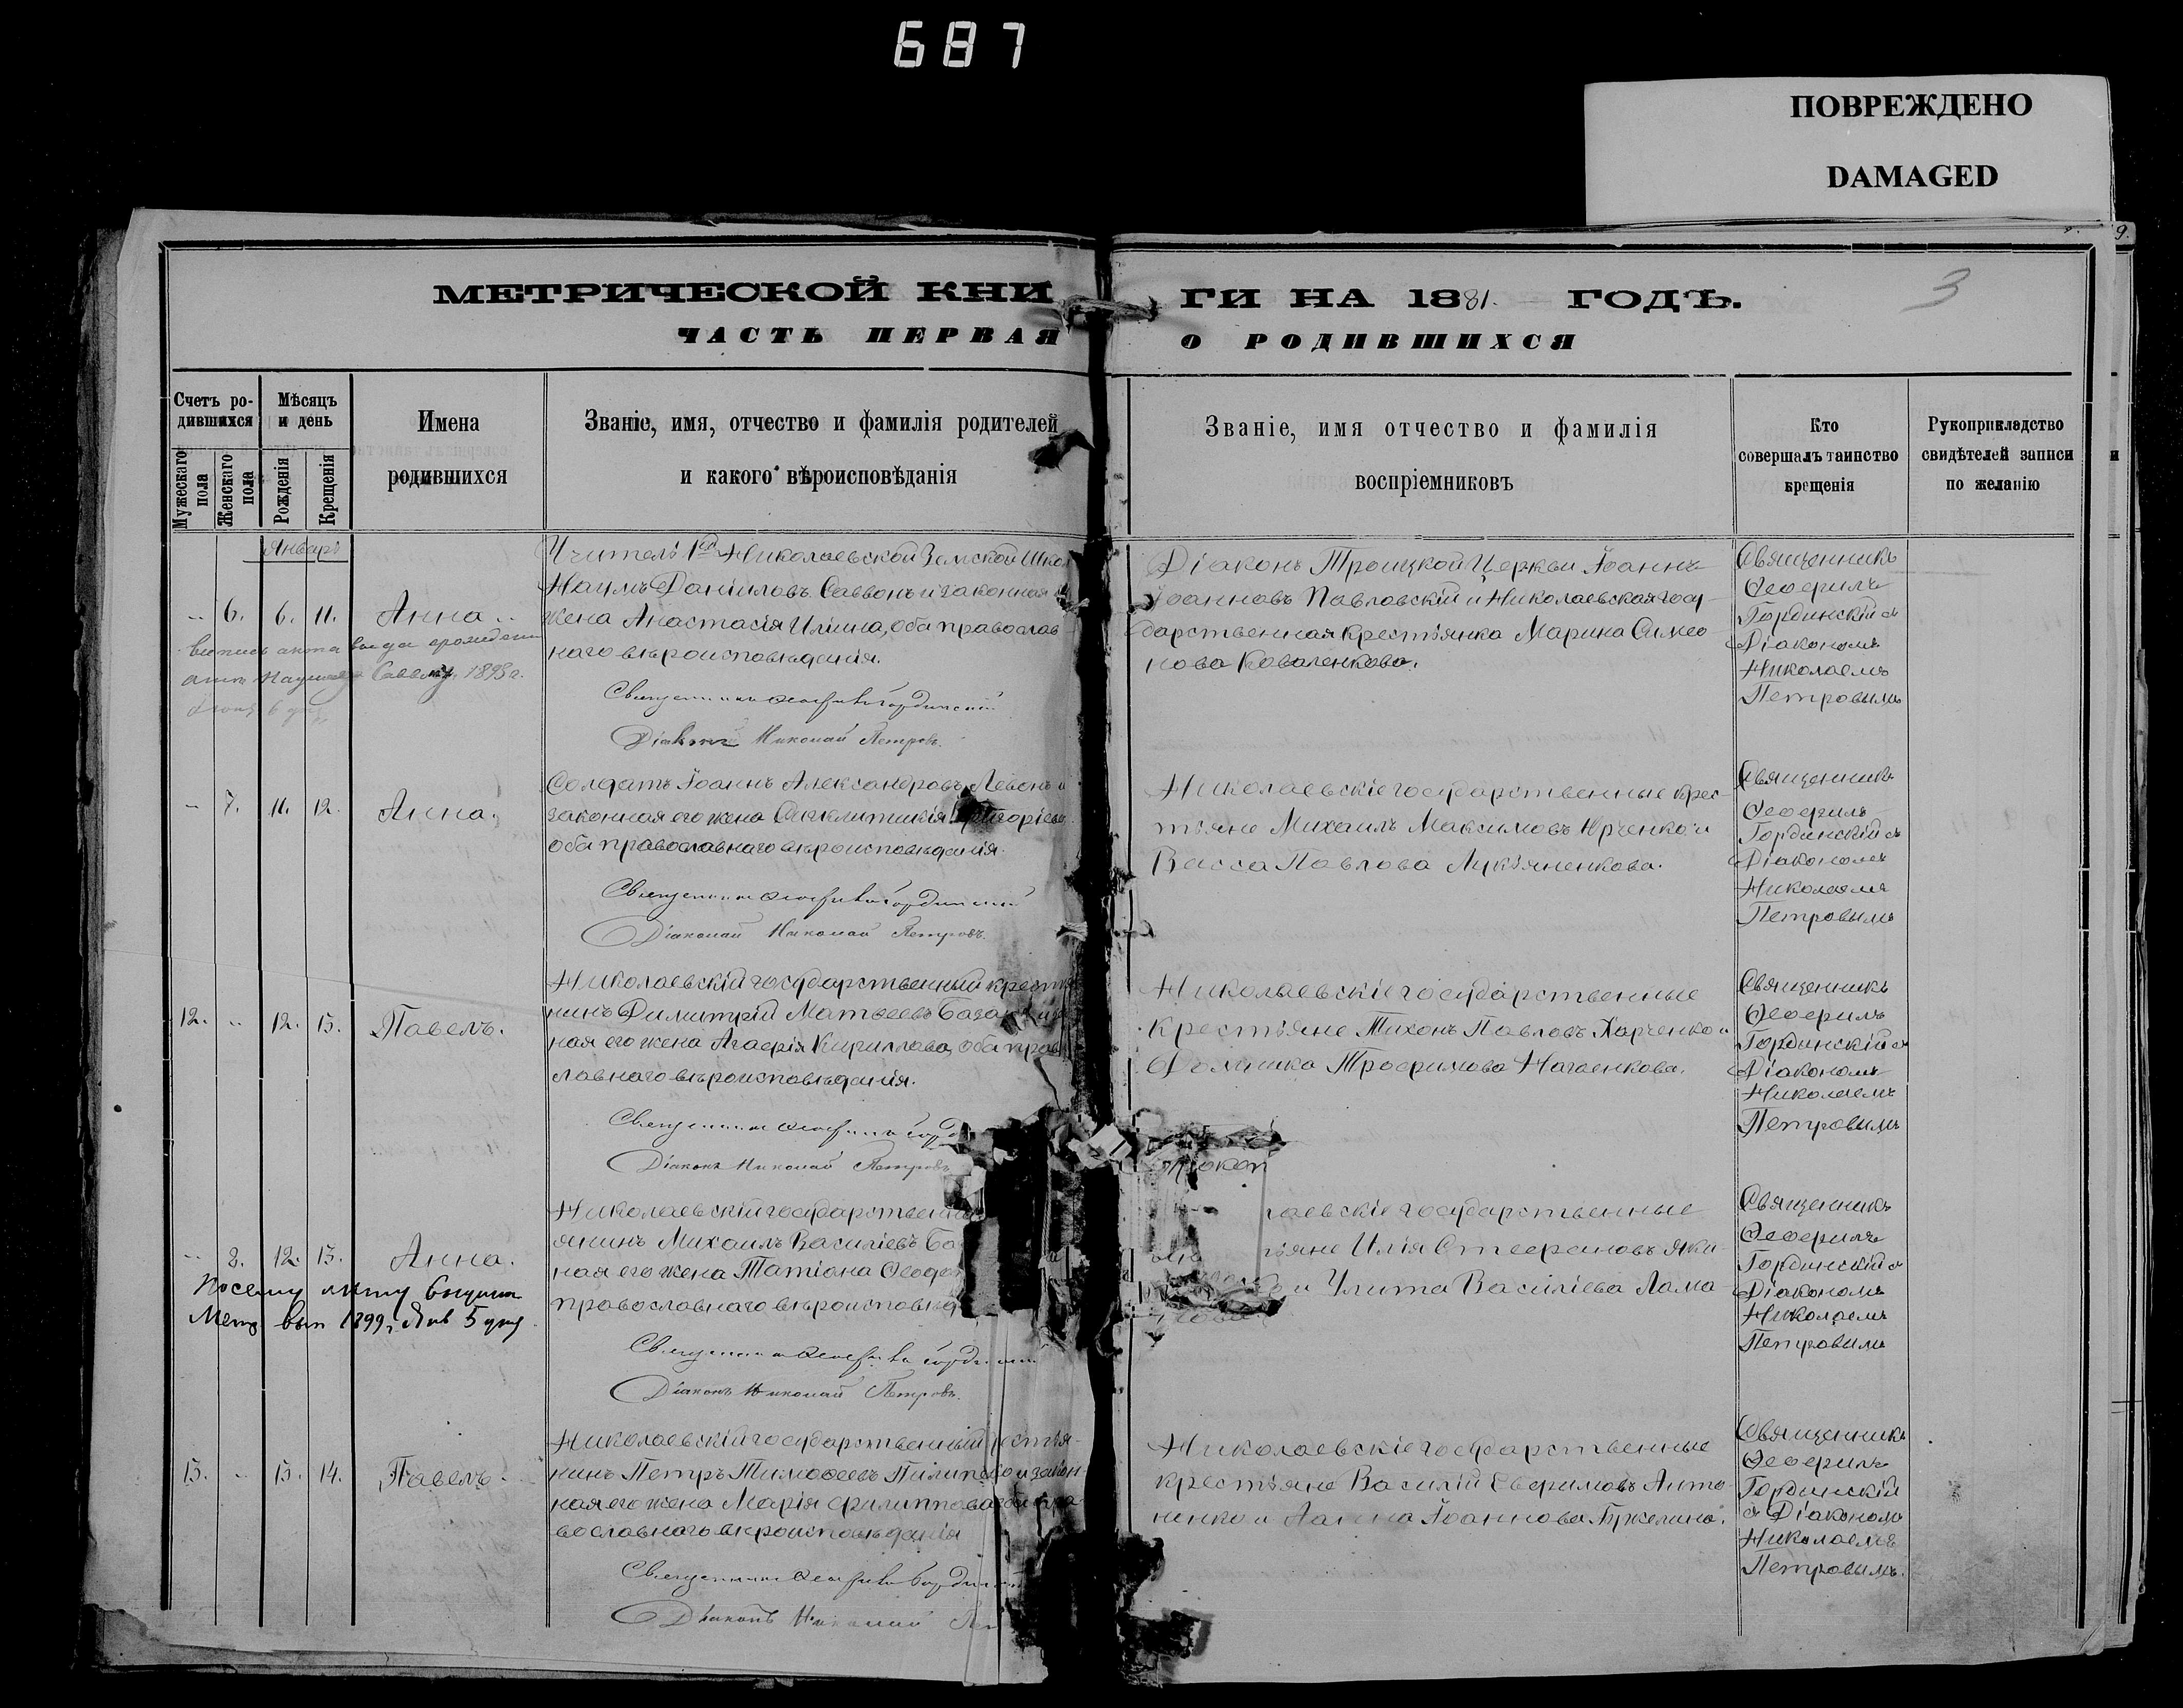 687
ПОВРЕЖДЕНО
DAMAGED
9.
3
МЕТРИЧЕСКОЙ КНИ
ГИ НА 1881. ГОДЪ.
ЧАСТЬ ПЕРВАЯ
О РОДИВШИХСЯ
Счетъ ро-
дившихся
Мужескаго пола
Женскаго пола
Мѣсяцъ
и день
Рожденія
Крещенія
Имена
родившихся
Званіе, имя, отчество и фамилія родителей
и какого вѣроисповѣданія
Званіе, имя отчество и фамилія
воспріемниковъ
Кто
совершалъ таинство
крещенія
Рукоприкладство
свидѣтелей записи
по желанію
Январь
6. 6. 11. Анна
1895 г.
Учитель 1ой Николаевской Земской Шко
Наумъ Даніиловъ Саввонъ и законная
жена Анастасія Иліина, оба православ
наго вѣроисповѣданія.
Священникъ Ѳеофилъ Гординскій
Діаконъ Николай Петровъ.
Діаконъ Троицкой Церкви Іоаннъ
Іоанновъ Павловскій и Николаевская госу-
дарственная крестьянка Марина Симео
нова Коваленкова.
Священникъ
Ѳеофилъ
Гординскій съ
Діакономъ
Николаемъ
Петровымъ
7. 11. 12. Анна.
Солдатъ Іоаннъ Александровъ Левонъ и
законная его жена Синклитикія Григоріева
оба православнаго вѣроисповѣданія.
Священникъ Ѳеофилъ Гординскій
Діаконъ Николай Петровъ.
Николаевскіе государственные крес-
тьяне Михаилъ Максимовъ Юрченко и
Васса Павлова Лукьяненкова.
Священникъ
Ѳеофилъ
Гординскій съ
Діакономъ
Николаемъ
Петровымъ
12. 12. 13. Павелъ.
Николаевскій государственный крестья
нинъ Димитрій Матвеевъ
ная его жена Агафія Кириллова, оба право
лавнаго вѣроисповѣданія.
Священникъ Ѳеофилъ Горд
Діаконъ Николай Петровъ
Николаевскіе государственные
крестьяне Тихонъ Павловъ Харченко и
Домника Трофимова Нагаенкова.
Священникъ
Ѳеофилъ
Гординскій съ
Діакономъ
Николаемъ
Петровымъ
8. 12. 13. Анна.
По сему акту выдана
Метр вып 1899 г. Янв 5 дня
Николаевскій государствен
янинъ Михаилъ Василіевъ Ба
ная его жена Татіана Ѳеодо
православнаго вѣроисповѣд
Священникъ Ѳеофилъ Гординскій
Діаконъ Николай Петровъ.
лаевскіе государственные
тьяне Илія Стефановъ Яки
и Улита Василіева Лама
Священникъ
Ѳеофилъ
Гординскій съ
Діакономъ
Николаемъ
Петровымъ
13. 13. 14. Павелъ.
Николаевскій государственный рестья-
нинъ Петръ Тимоѳеевъ Пилипенко и закон-
ная его жена Марія Филиппова оба пра
вославнаго вѣроисповѣданія
Священникъ Ѳеофилъ Гординскій
Діаконъ Николай Пет
Николаевскіе государственные
крестьяне Василій Евфимовъ Анто
ненко и Іоаннова
Священникъ
Ѳеофилъ
Гординскій
съ Діакономъ
Николаемъ
Петровымъ.